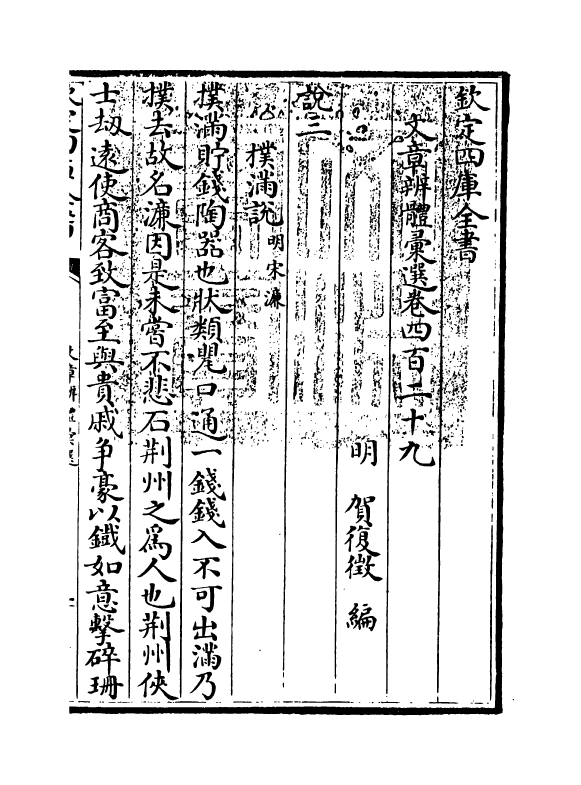 欽定四庫全書
文章辨體彙選卷四百二十九
明 賀復徵 編
說三
撲滿說 明 宋濂
撲滿貯錢陶器也狀類甖口通一錢錢入不可出滿乃
撲去故名濂因是未嘗不悲石荆州之為人也荆州俠
士刼遠使商客致富至與貴戚争豪以鐵如意擊碎珊